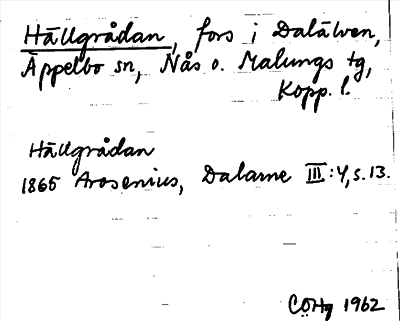 Hällgrådan, fors i Dalälven,
Äppelbo sn, Nås o. Malungs tg,
Kopp. l.
Hällgrådan
1865 Arosenius, Dalarne III:4, s. 13.
COHg 1962